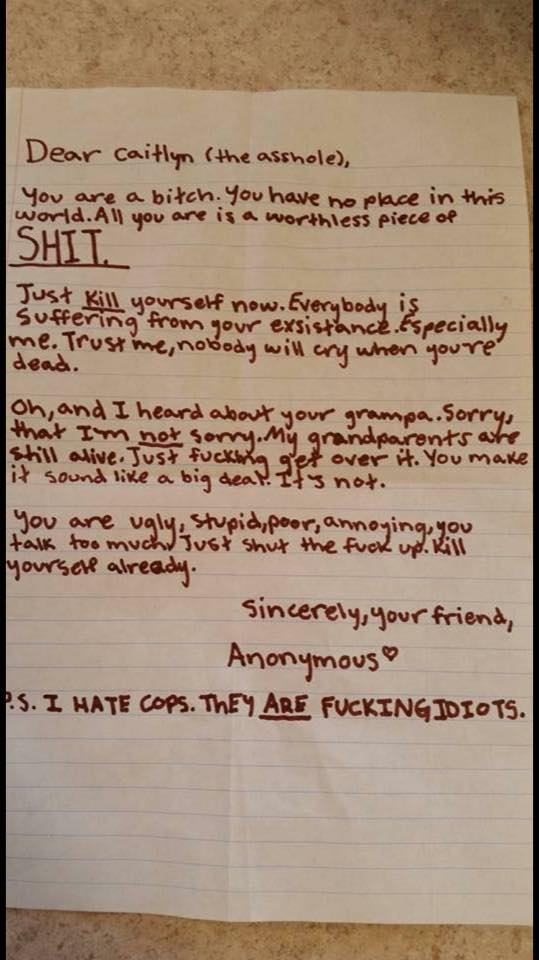 Dear Caitlyn (the asshole),
You are a bitch. You have no place in this
world. All you are is a worthless piece of
SHIT.
Just Kill yourself now. Everybody is
suffering from your exsistance. Especially
me. Trust me, nobody will cry when you're
dead.
Oh, and I heard about your grampa. Sorry,
that I'm not sorry. My grandparents are
still alive. Just fucking get over it. You make
it sound like a big deal. It's not.
You are ugly, stupid, poor, annoying, you
talk too much. Just shut the fuck up. Kill
yourself already.
Sincerely, your friend,
Anonymous♡
P.S. I HATE COPS. ThEY ARE FUCKING IDIOTS.